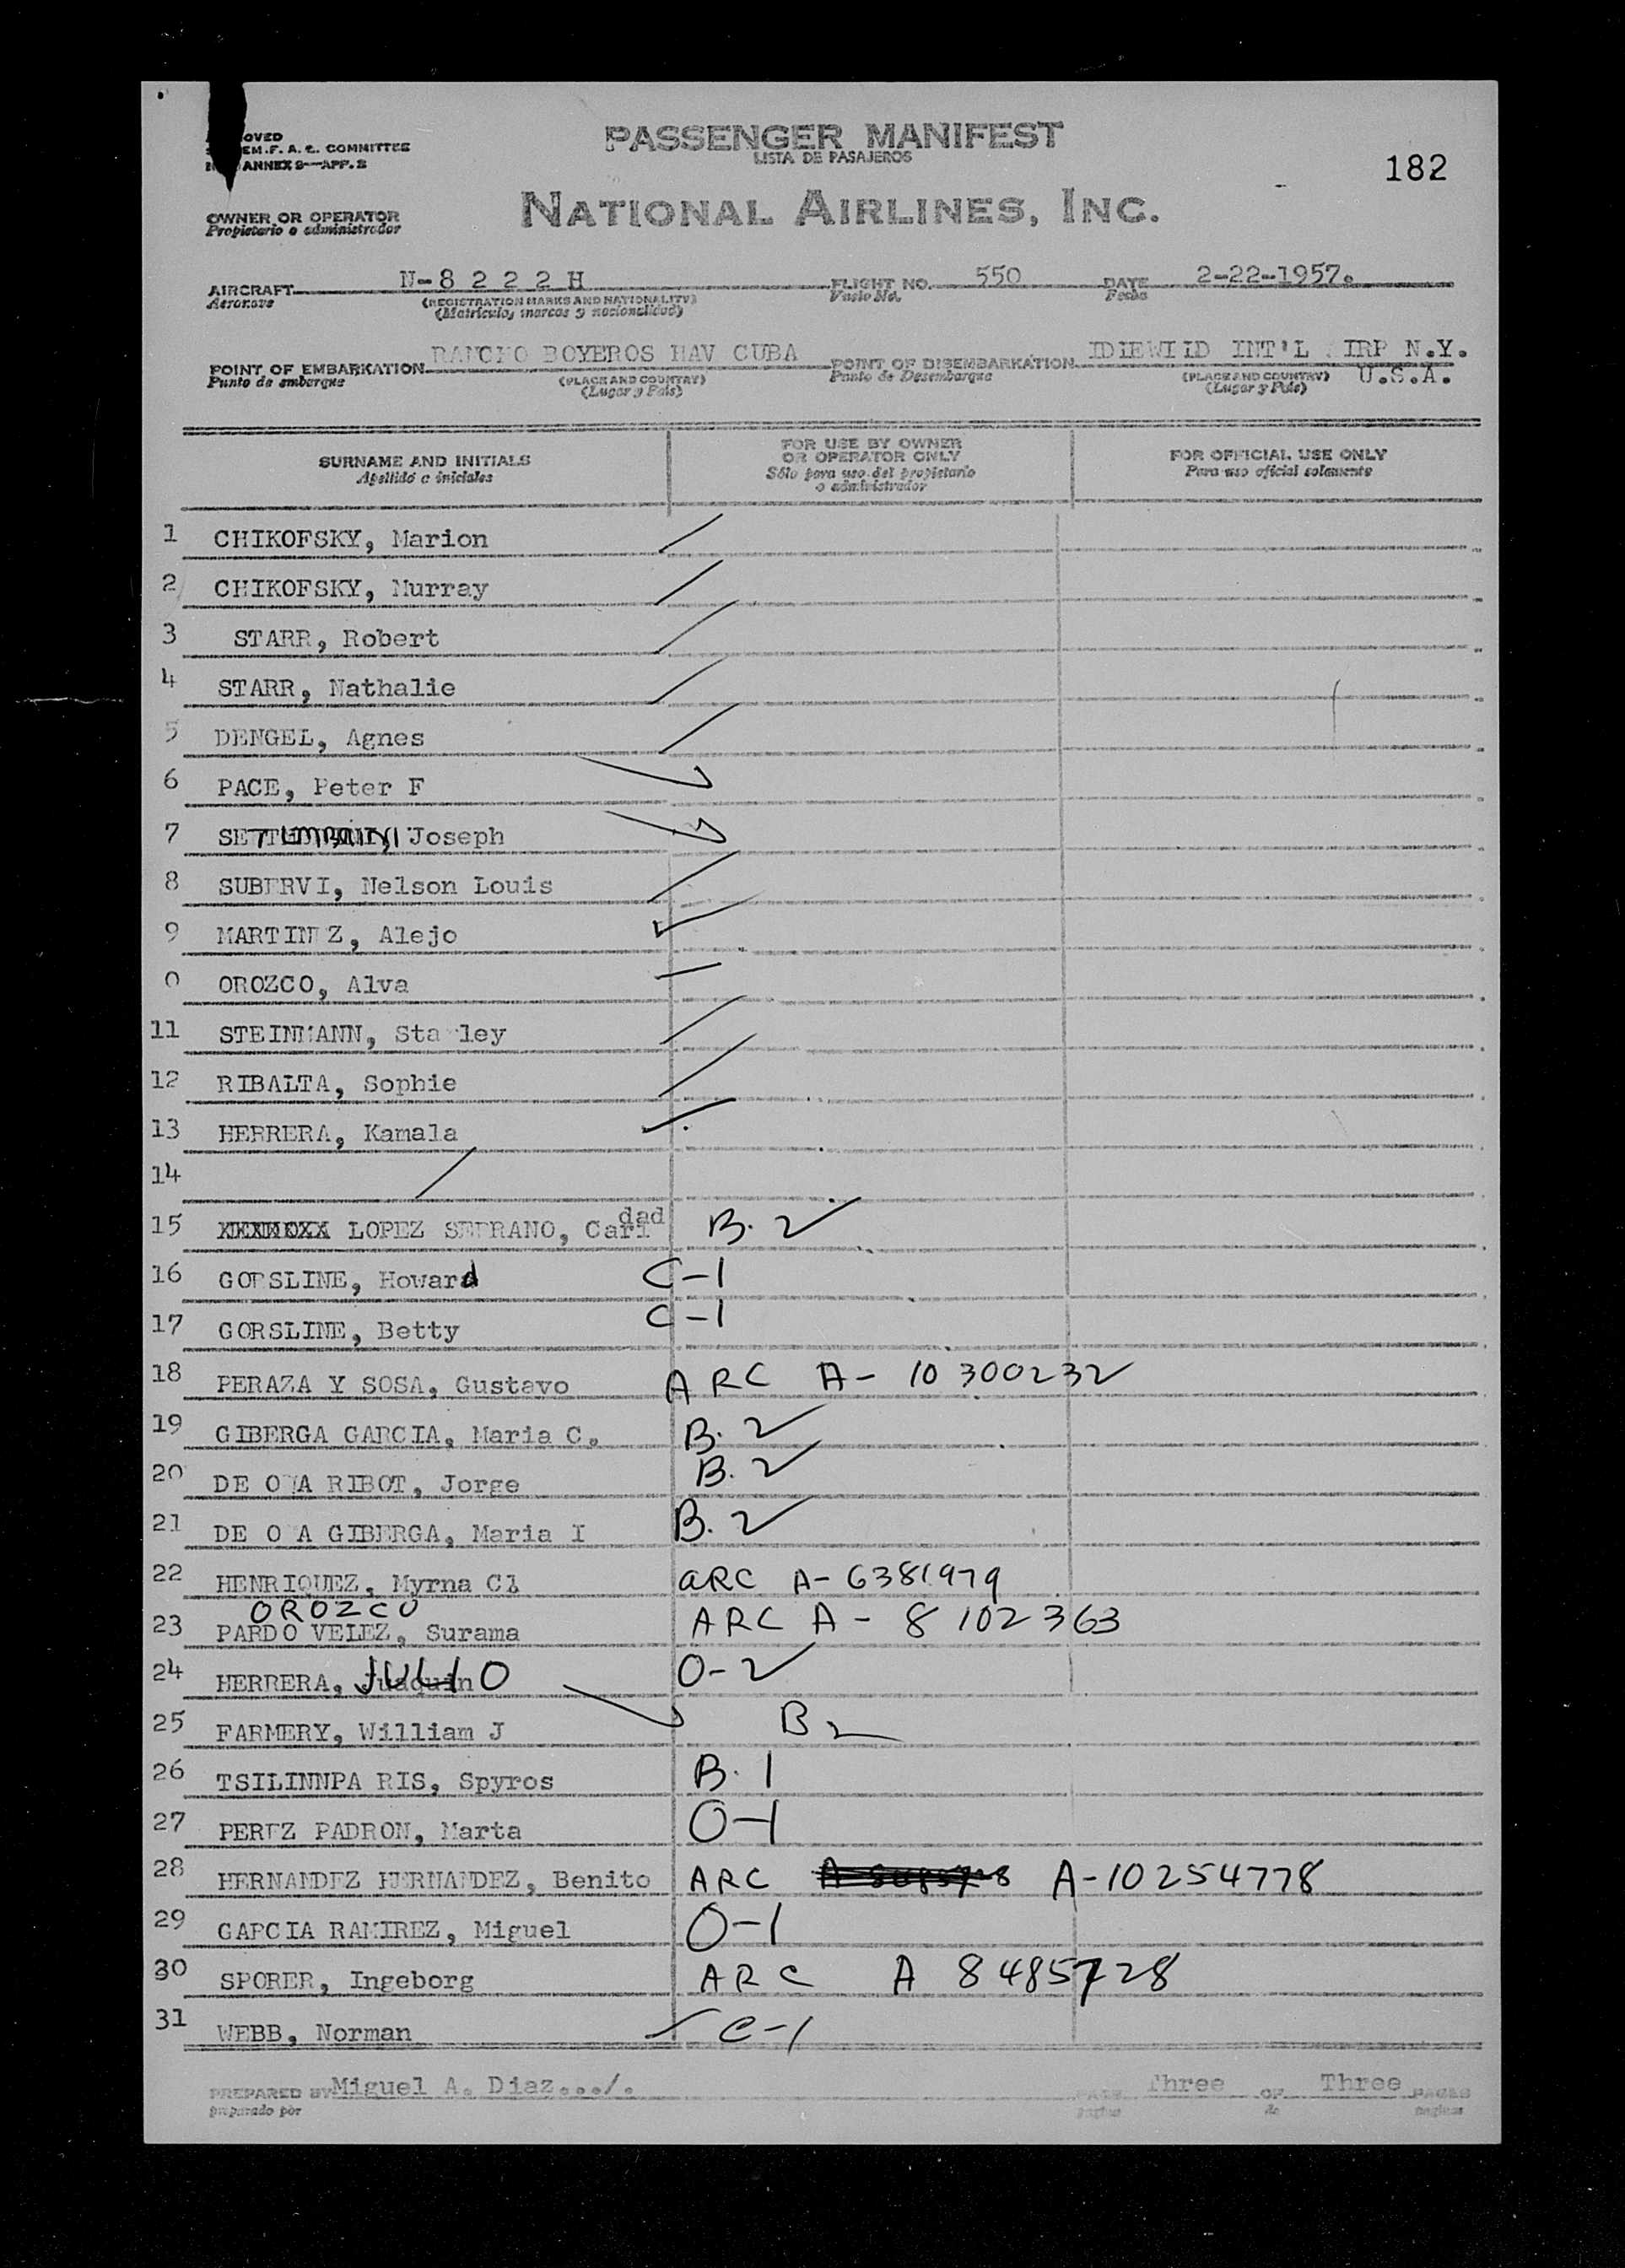 OVED
EM. F. A. L. COMMITTEE
ANNEX 9—APP. 2
PASSENGER MANIFEST
LISTA DE PASAJEROS
182
NATIONAL AIRLINES, INC.
OWNER OR OPERATOR
Propietario o administrador
AIRCRAFT N-8 2 2 2 H FLIGHT NO. 550 DATE 2-22-1957.
Aeronave (REGISTRATION MARKS AND NATIONALITY) Vuelo No. Fecha
(Matricula, marcas y nacionalidad)
POINT OF EMBARKATION RANCHO BOYEROS HAV CUBA POINT OF DISEMBARKATION IDLEWILD INT'L IRP N.Y.
U.S.A.
Punto de embarque (PLACE AND COUNTRY) Punto de Desembarque (PLACE AND COUNTRY)
(Lugar y Pais) (Lugar y Pais)
SURNAME AND INITIALS FOR USE BY OWNER OR OPERATOR ONLY FOR OFFICIAL USE ONLY
Apellido e iniciales Sólo para uso del propietario o administrador Para uso oficial solamente
1 CHIKOFSKY, Marion
2 CHIKOFSKY, Murray
3 STARR, Robert
4 STARR, Nathalie
5 DENGEL, Agnes
6 PACE, Peter F
7 Joseph
8 SUBERVI, Nelson Louis
9 MARTINEZ, Alejo
0 OROZCO, Alva
11 STEINMANN, Sta ley
12 RIBALTA, Sophie
13 HERRERA, Kamala
14
15 LOPEZ SERRANO, Caridad B. 2
16 GORSLINE, Howard C-1
17 GORSLINE, Betty C-1
18 PERAZA Y SOSA, Gustavo ARC A- 10 300232
19 GIBERGA GARCIA, Maria C. B. 2
20 DE O A RIBOT, Jorge B. 2
21 DE O A GIBERGA, Maria I B. 2
22 HENRIQUEZ, Myrna Cl ARC A- 6381979
OROZCO
23 PARDO VELEZ, Surama ARC A - 8 102 363
24 HERRERA, JULIO O-2
25 FARMERY, William J B 2
26 TSILINNPA RIS, Spyros B. 1
27 PEREZ PADRON, Marta O-1
28 HERNANDEZ HERNANDEZ, Benito ARC A-10254778
29 GARCIA RAMIREZ, Miguel O-1
30 SPORER, Ingeborg ARC A 8485728
31 WEBB, Norman C-1
PREPARED BY Miguel A. Diaz.../. PAGE Three OF Three PAGES
preparado por pagina de paginas